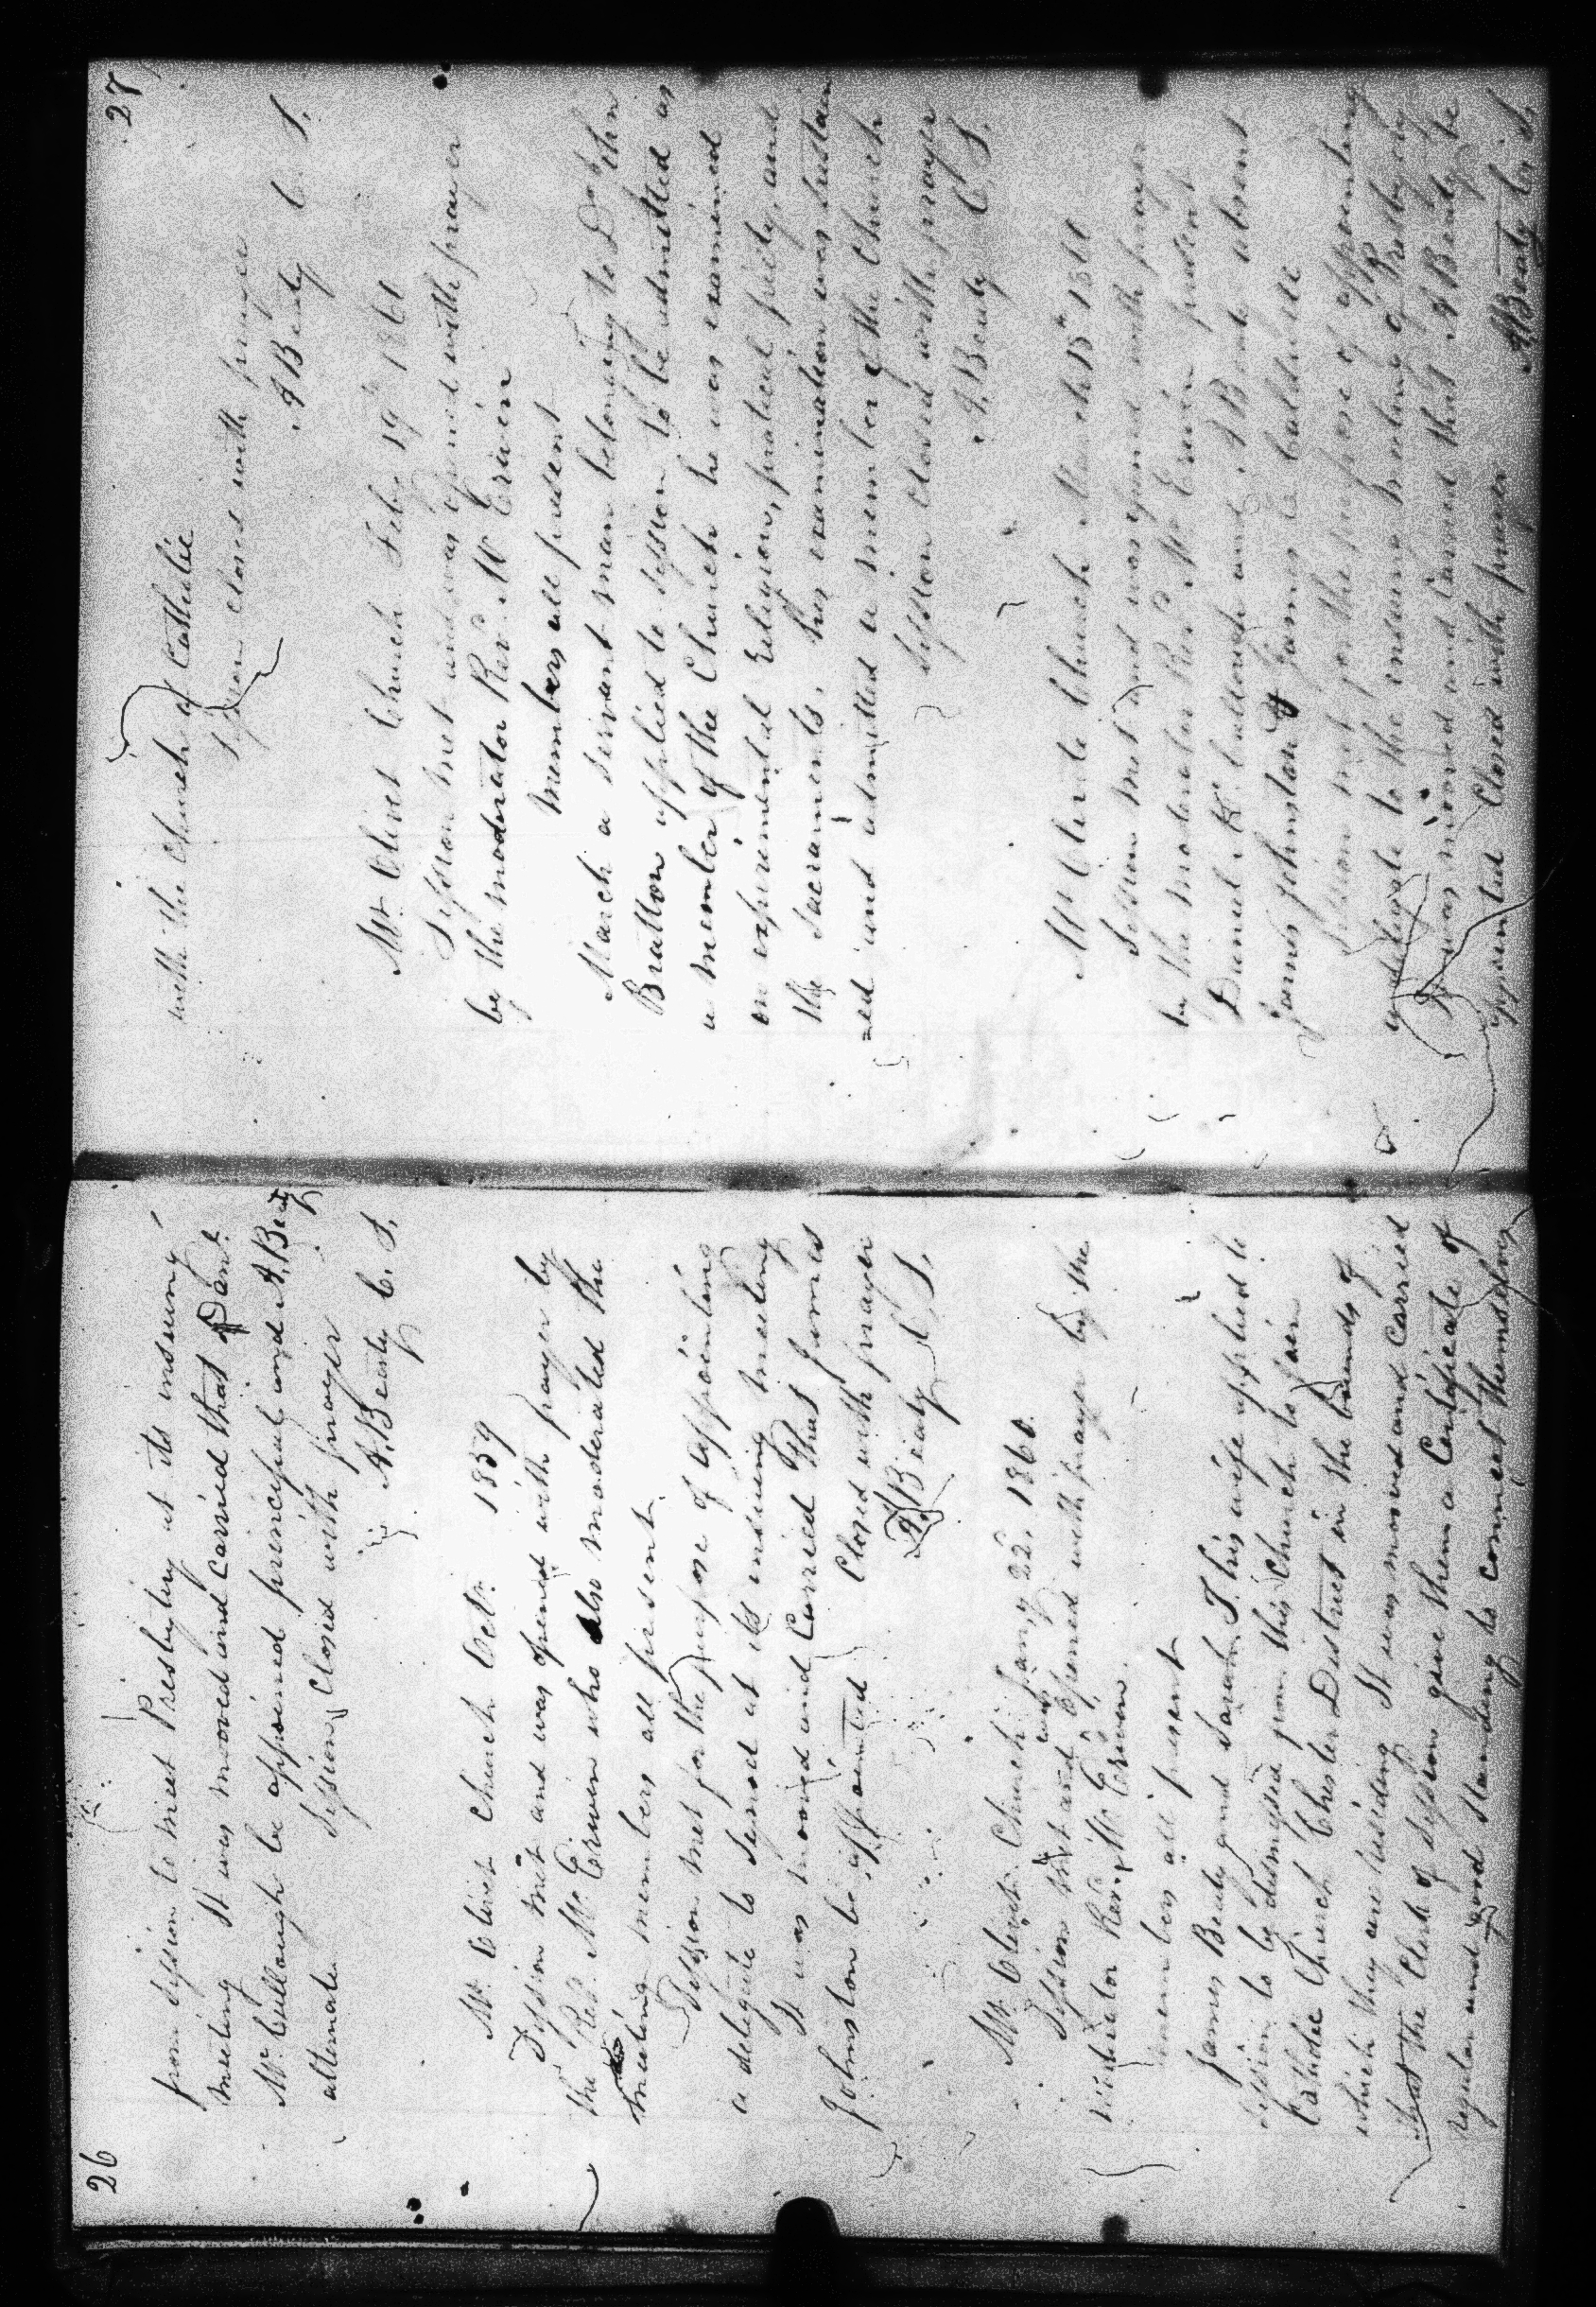 26
from Session to meet Presbytery at its insuing
meeting It was mooved and carried that Danl.
Mc.Cullough be appoined principal and A. Beaty
alternate Session Closed with prayer
A. Beaty C. S.
Mt. Olivet Church Oct. 1859
Session met and was opened with prayer by
the Rev. Mc. Erwin who also moderated the
meeting members all present.
Session met for the purpose of appointing
a delegate to Synod at its insuing meeting
It was mooved and Carried That James
Johnston be appointed Closed with prayer
A. Beaty C. S.
Mt. Olivet Church Jany 22. 1860.
Session met and was opened with prayer by the
Rev. Mc. Erwin.
members all present
James Beaty and Sarah J. his wife applied to
Session to be dismissed from this Church to join
Catholic Church Chester District in the bounds of
which they are residing It was mooved and Carried
that the Clerk of Session give them a Certificate of
regular and good standing to connect themselves
27
with the Church of Catholic
Session closed with prayer
A Beaty C. S.
Mt. Olivet Church Feb. 19th 1861
Session met and was opened with prayer
by the moderator Revd. Mc Erwin
Members all present
March a servant man belonging to Doct. John
Bratton applied to session to be admitted as
a member of the Church he was examined
on experimental Religion, practical piety, and
the Sacraments. his examination was sustain
-ed and admitted a member of the Church
Session closed with prayer
A. Beaty C. S.
Mt Olivete Church March 15th 1861
Session met and was opened with prayer
by the moderator Revd. Mc Erwin present
Daniel Mc.Cullough and A Beaty absent
James Johnston & James Caldwell
Session met for the purpose of appointing
a delegate to the ensuing meeting of Presbytery
It was mooved and Carried that A Beaty be
appointed Closed with prayer
A Beaty C. S.